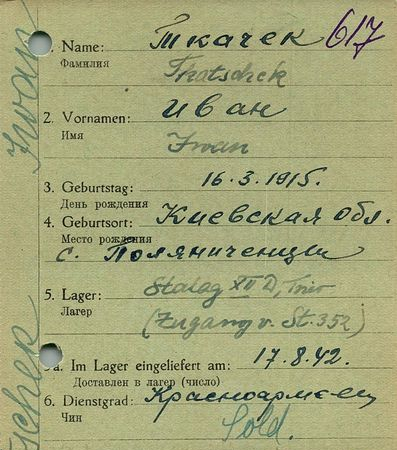 1. Name: Ткачек 617
Фамилия
Tkatschek
2. Vornamen: Иван
Имя
Iwan
3. Geburtstag: 16.3.1915.
День рождения
4. Geburtsort: Киевская обл.
Место рождения
с. Поляниченцы
5. Lager: Stalag XII D, Trier
Лагерь
(Zugang v. St. 352)
5a. Im Lager eingeliefert am: 17.8.42.
Доставлен в лагерь (число)
6. Dienstgrad: Красноармеец
Чин
Sold.
Iwan